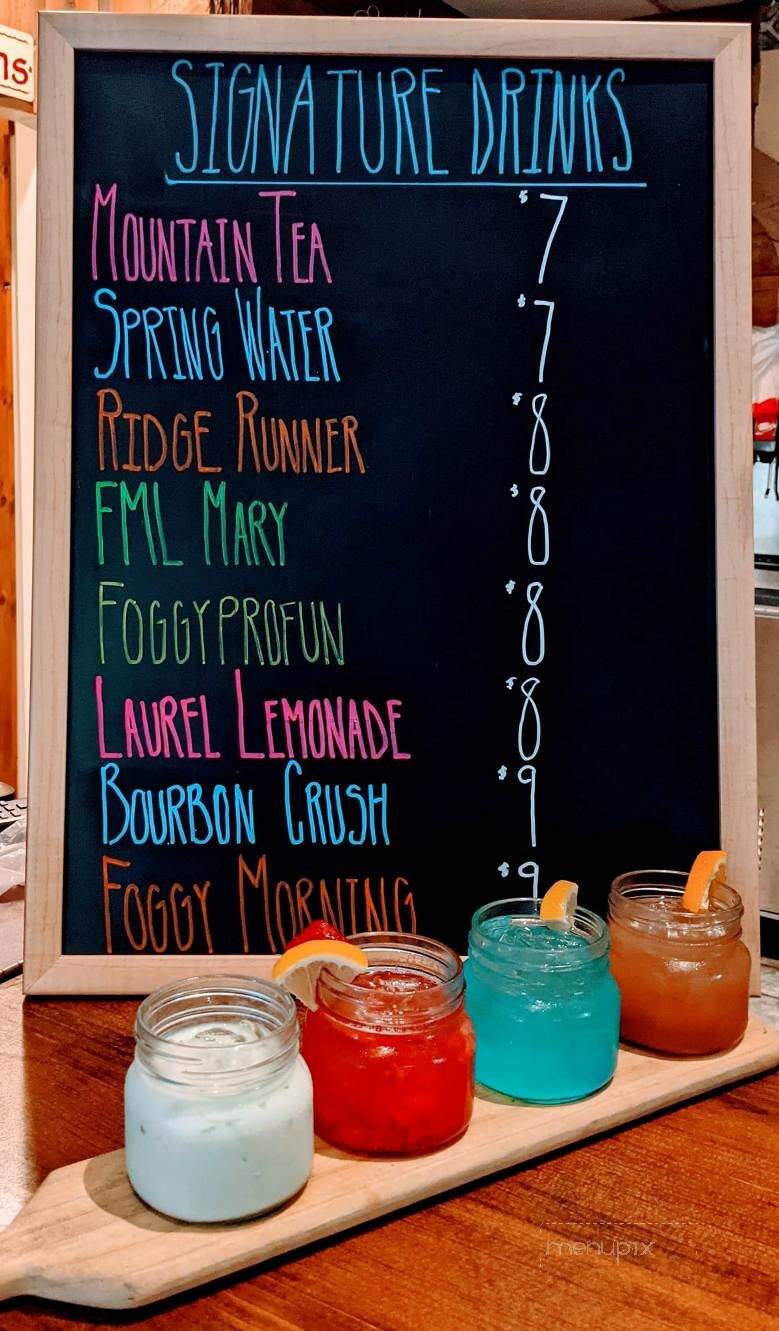 ns
SIGNATURE DRINKS
MOUNTAIN TEA $7
SPRING WATER $7
RIDGE RUNNER $8
FML MARY $8
FOGGYPROFUN $8
LAUREL LEMONADE $8
BOURBON CRUSH $9
FOGGY MORNING $9
menupix